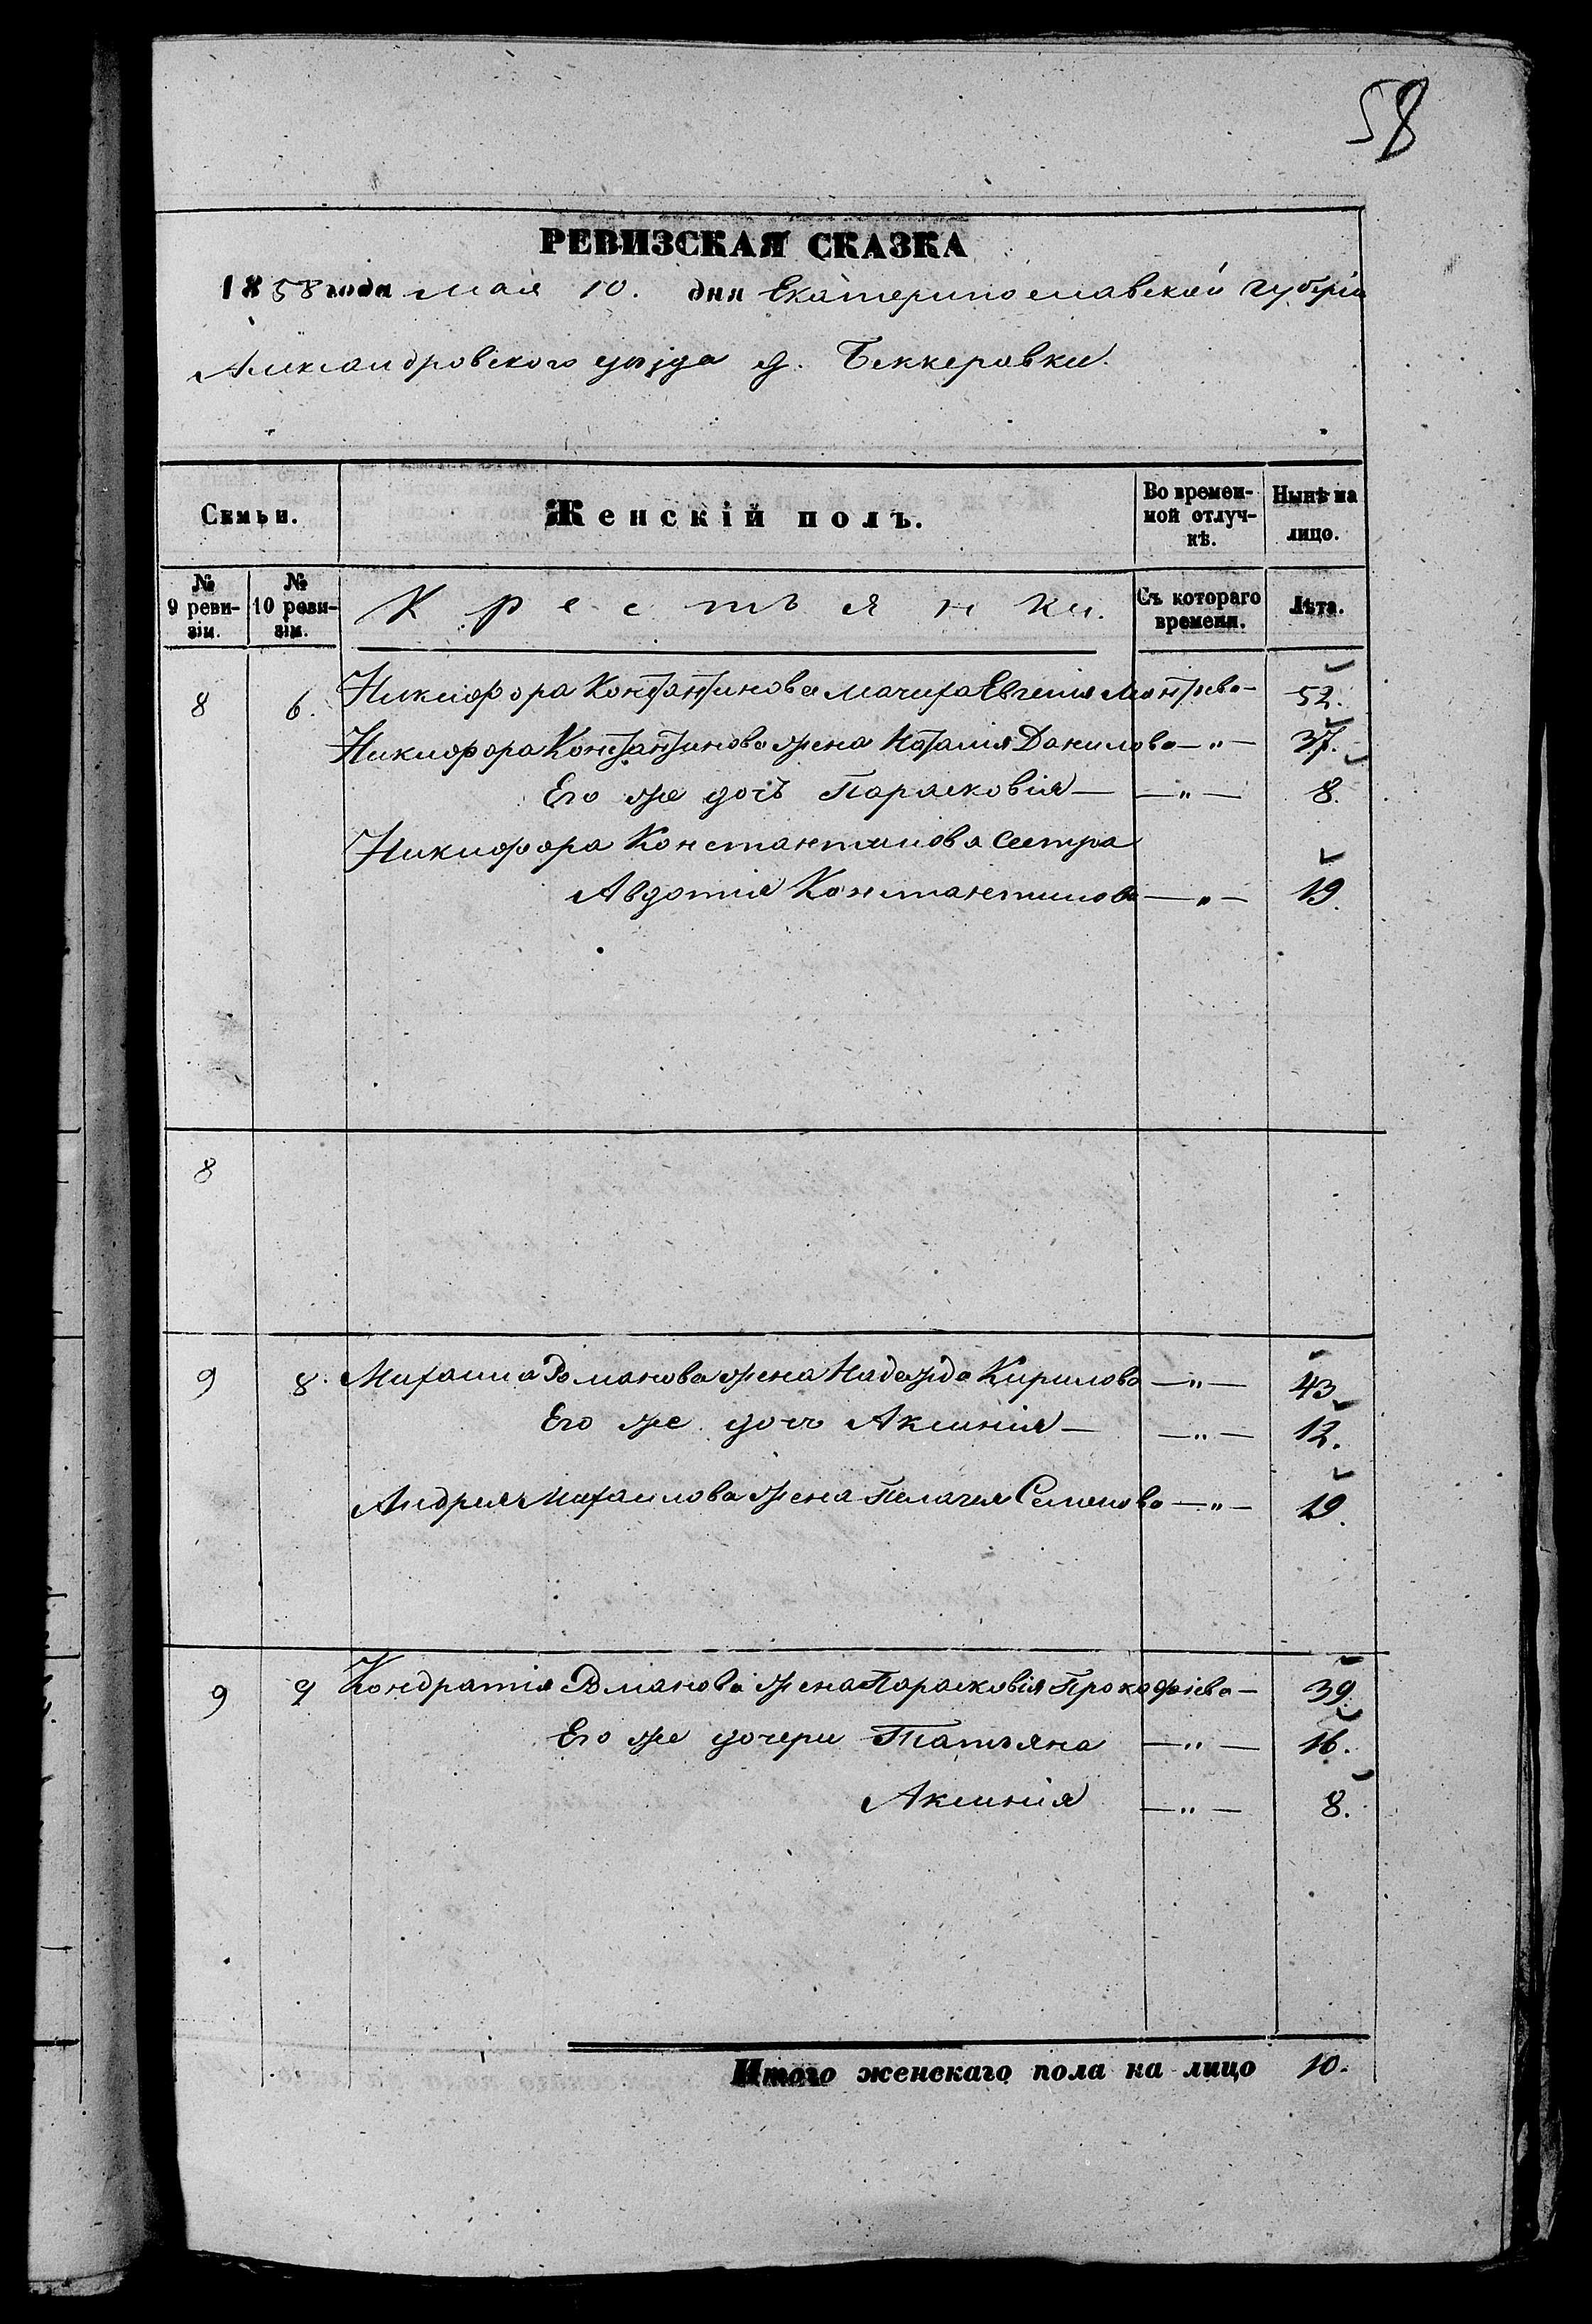 58
РЕВИЗСКАЯ СКАЗКА
1858 года мая 10. дня Екатеринославской губерніи
Александровского уѣзда д. Беккеровки.
Семьи. Женскій полъ. Во времен- Нынѣ на
ной отлуч- лицо.
кѣ.
№ № Крестьянки. Съ котораго Лѣта.
9 реви- 10 реви- времени.
зіи. зіи.
8 6. Никифора Константинова мачиха Евгенія — 52.
Никифора Константинова жена Наталия Данилова — " — 37.
Его же дочь Парасковія — — " — 8.
Никифора Константинова сестра
Авдотия Константинова — " — 19.
8
9 8. Михаила Романова жена Надежда Кирилова — " — 43
Его же дочь Аксинія — — " — 12.
Андрея Михаилова жена Пелагея Семенова — " — 19.
9 9 Кондратія Романова жена Парасковія Прокофіева — 39.
Его же дочери Татьяна — " — 16.
Аксинія — " — 8.
Итого женскаго пола на лицо 10.